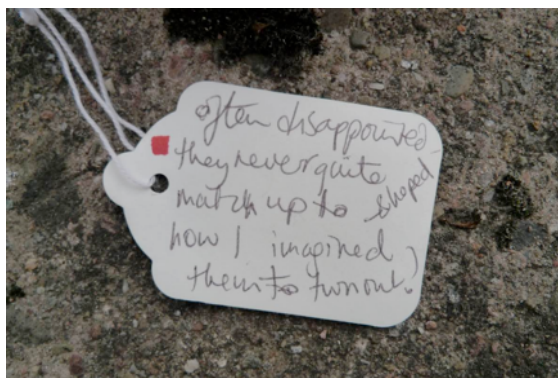 often disappointed -
they never quite
match up to shaped
how I imagined )
them to turn out.